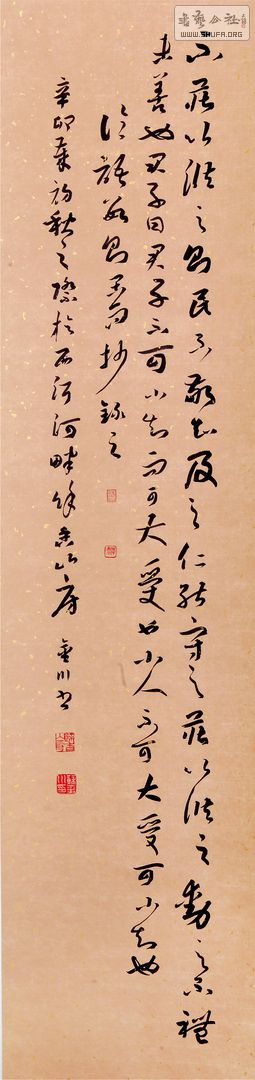 書藝公社
WWW.SHUFA.ORG
不莊以涖之則民不敬知及之仁能守之莊以涖之動之不禮
未善也君子曰君子不可小知而可大受也小人不可大受可小知也
論語數則抄錄之
辛卯歲初秋之際於西河河畔山房